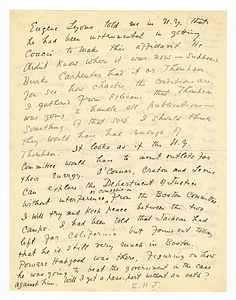 Eugene Lyons told me in N.Y. that
he had been instrumental in getting
Coacci to make this affidavit. He
didn't know where it was now - suppose
Burke Carpenter had it or Thompson.
You see how chaotic the conditions are
I gathered from Felicani that Thompson
was going to handle all publications -
something of that sort. I should think
they would have had enough of
Thompson. It looks as if the N.Y.
Committee would have to invent outlets for
their energy. O'Connor, Cranton and Levine
can explore the Department of Justice
without interference from the Boston Committee
I will try and keep peace between the two
camps. I had been told that Jackson had
left for California but found out today
that he is still very much in Boston.
Powers Hapgood was there, figuring on how
he was going to beat the government in the case
against him. Will I get a passport without an oath?
E.H.J.